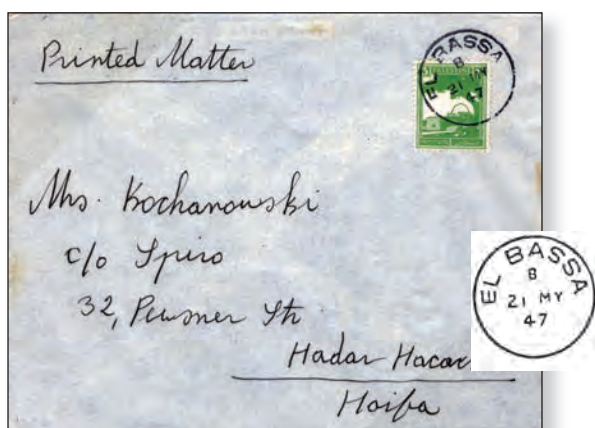 Printed Matter
EL BASSA
B
21 MY
47
Mrs. Kochanowski
c/o Spiro
32, Pewsner Str
Hadar Hacar
Haifa
EL BASSA
B
21 MY
47